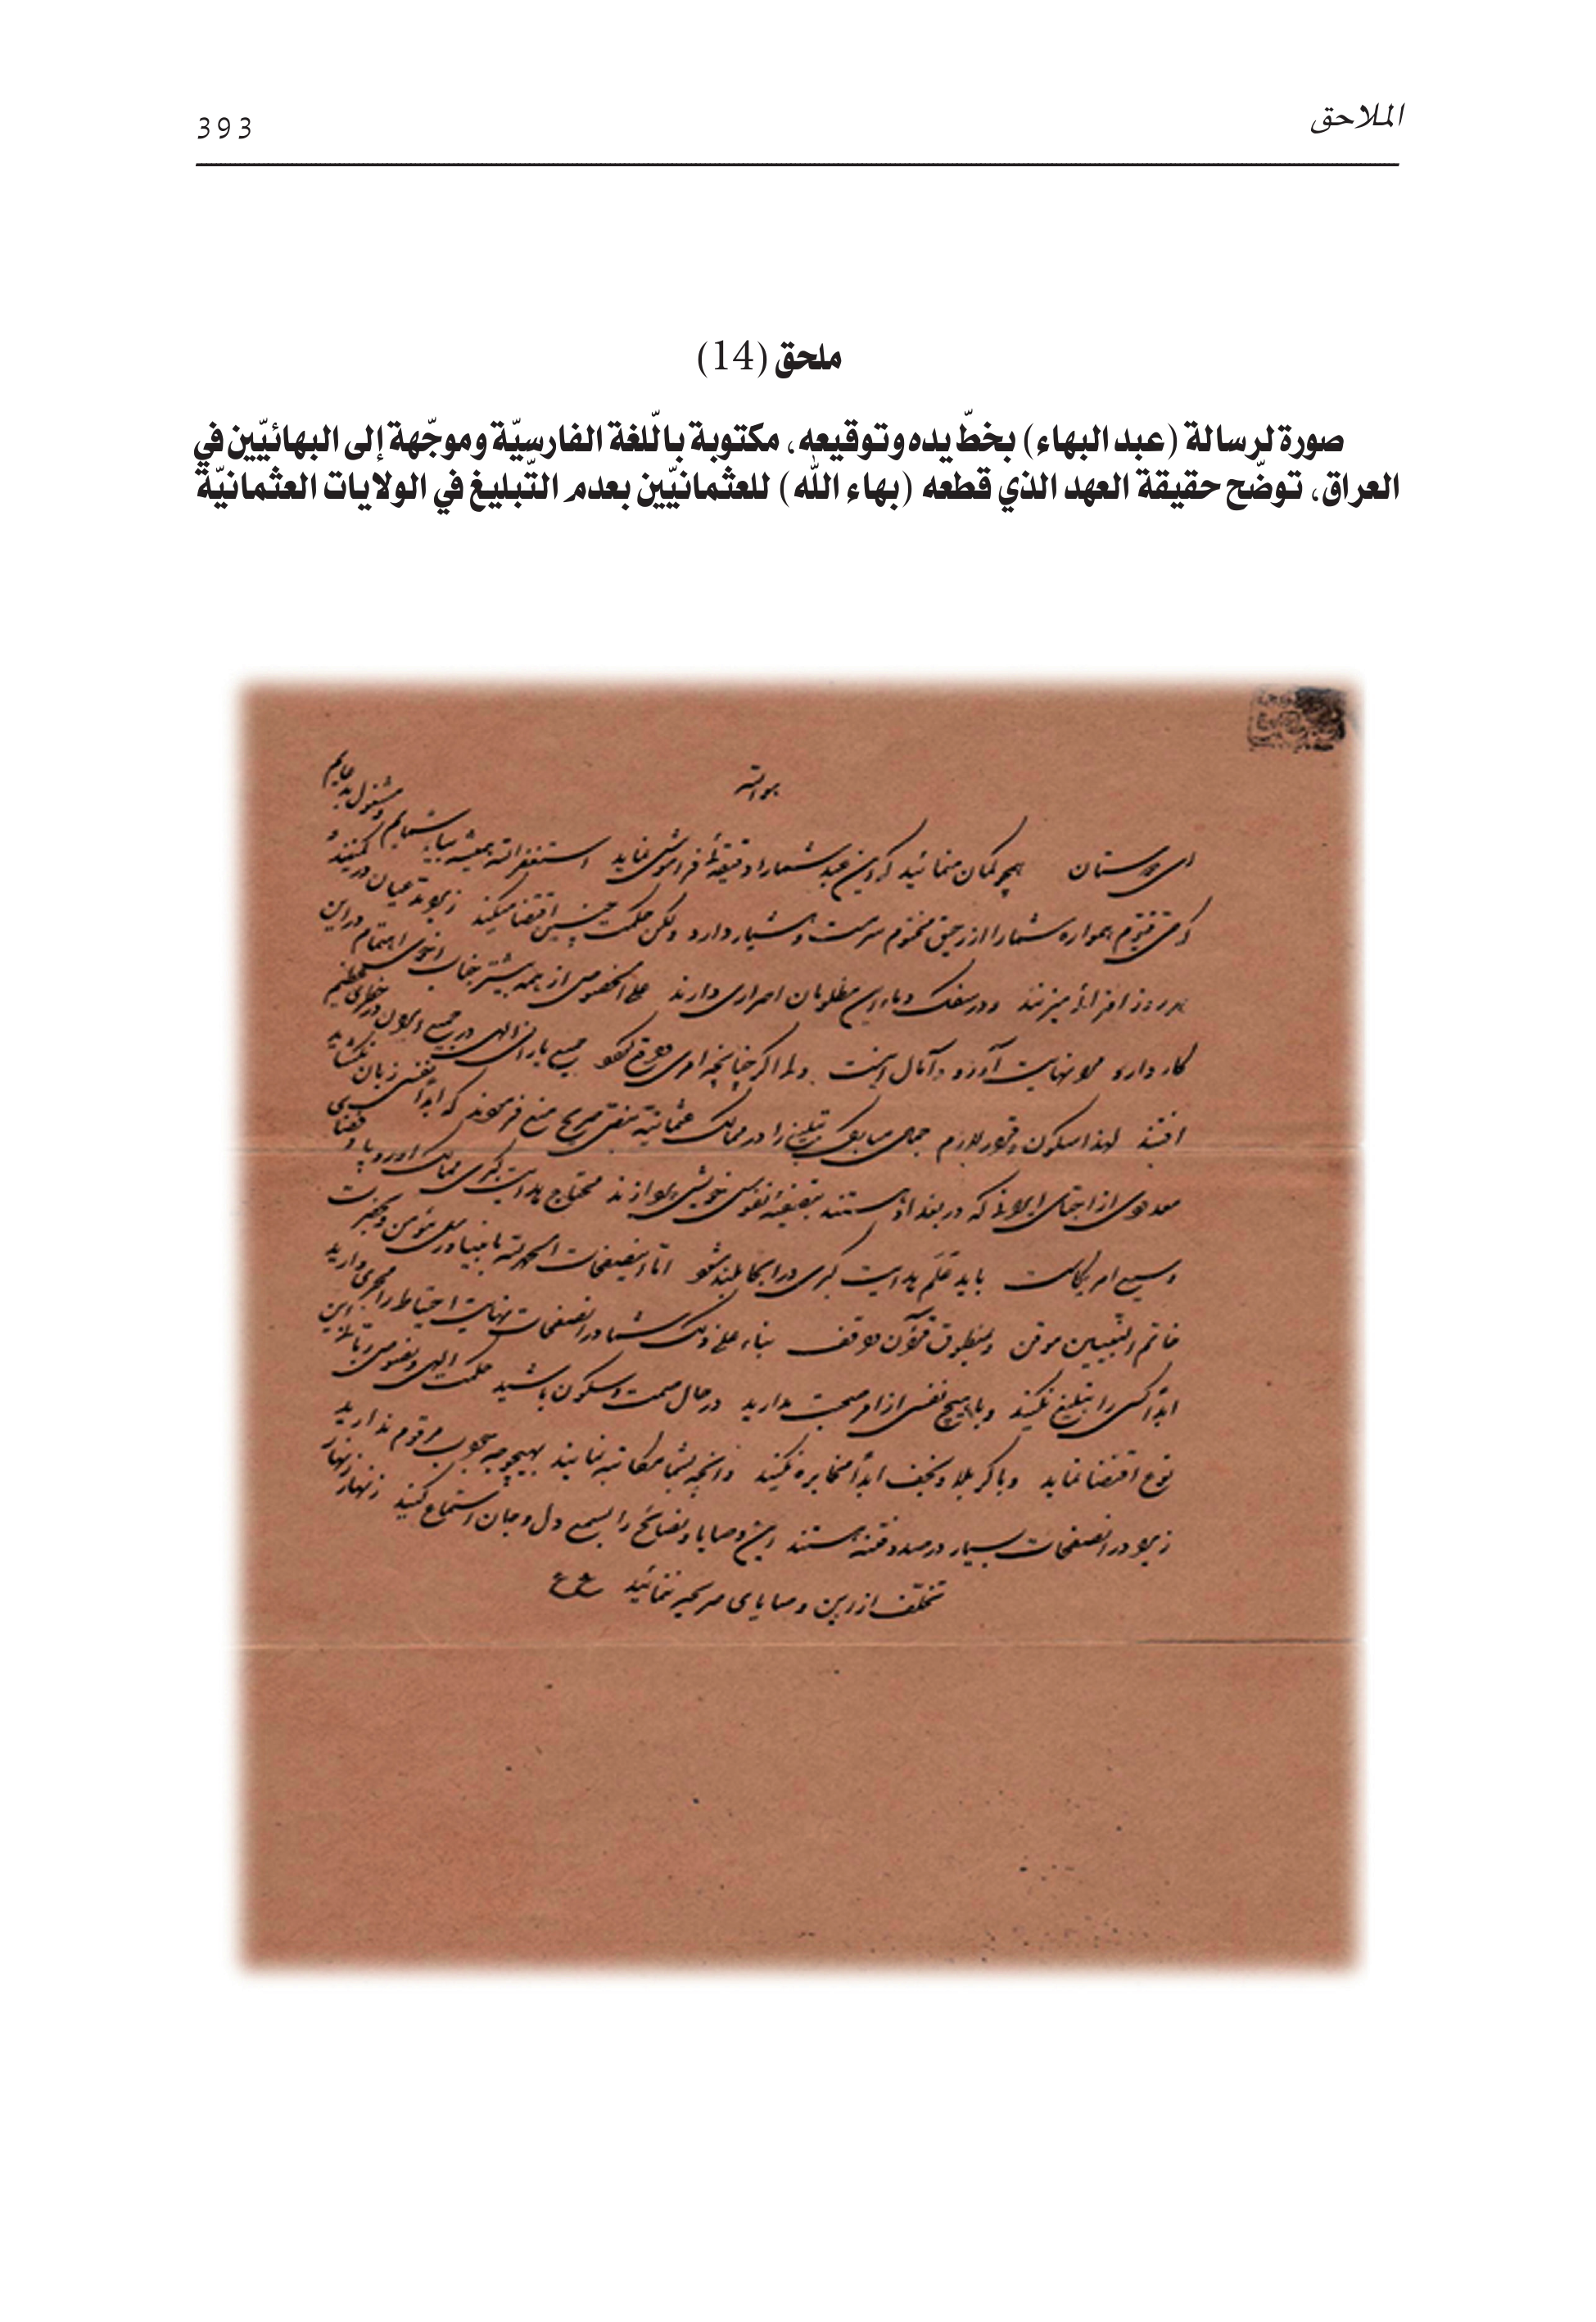 الملاحق
393
ملحق (14)
صورة لرسالة (عبد البهاء) بخطّ يده وتوقيعه، مكتوبة باللّغة الفارسيّة وموجّهة إلى البهائيّين في
العراق، توضّح حقيقة العهد الذي قطعه (بهاء الله) للعثمانيّين بعدم التّبليغ في الولايات العثمانيّة
هوالله
ای دوستان همچو گمان منمائید که این عبد شما را دقیقهٔ فراموش نماید استغفرالله همیشه بیاد شمایم و مشغول
هموارہ شما را از رحیق مختوم سرمست و هشیار دارد ولکن حکمت چنین اقتضا میکند زیرا مدعیان در کمینند و
هر روز افترائی میزنند و در سفک دماء این مظلومان اصراری دارند علی الخصوص از همه بیشتر جناب اخوی اهتمام در این
کار دارد و نهایت آرزو و آمال اینست ولی اگر چنانچه امری وقوع جمیع یاران الهی در جمیع ایران در خطری عظیم
افتند لهذا سکون و قرار لازم جمال مبارک تبلیغ را در ممالک عثمانیه بنص صریح منع فرمودند که ابداً نفسی زبان نگشاید
معدودی از احبای ایرانی که در بغداد هستند نفوس خویش پردازند محتاج هدایت کبری ممالک اوروپا و فضای
وسیع امریکاست باید عَلَم هدایت کبری در آنجا بلند شود امّا اینصفحات الحمدلله بانبیا و رسل مؤمن و بحضرت
خاتم النّبیین موقن و بمنطوق قرآن بناء علی ذلک شما در آنصفحات نهایت احتیاط را مجری دارید
ابداً کسی را تبلیغ نکنید و با هیچ نفسی از امر صحبت مدارید در حال صمت و سکون باشید حکمت الهی و نصوص ربّانی این
نوع اقتضا نماید و با کربلا و نجف ابداً مخابره نکنید و آنچه بشما مکاتبه نمایند بهیچوجه جواب مرقوم ندارید
زیرا در آنصفحات بسیار در صدد فتنه هستند این وصایا و نصائح را بسمع دل و جان استماع کنید زنهار زنهار
تخلّف از این وصایای صریحه ننمائید ع ع